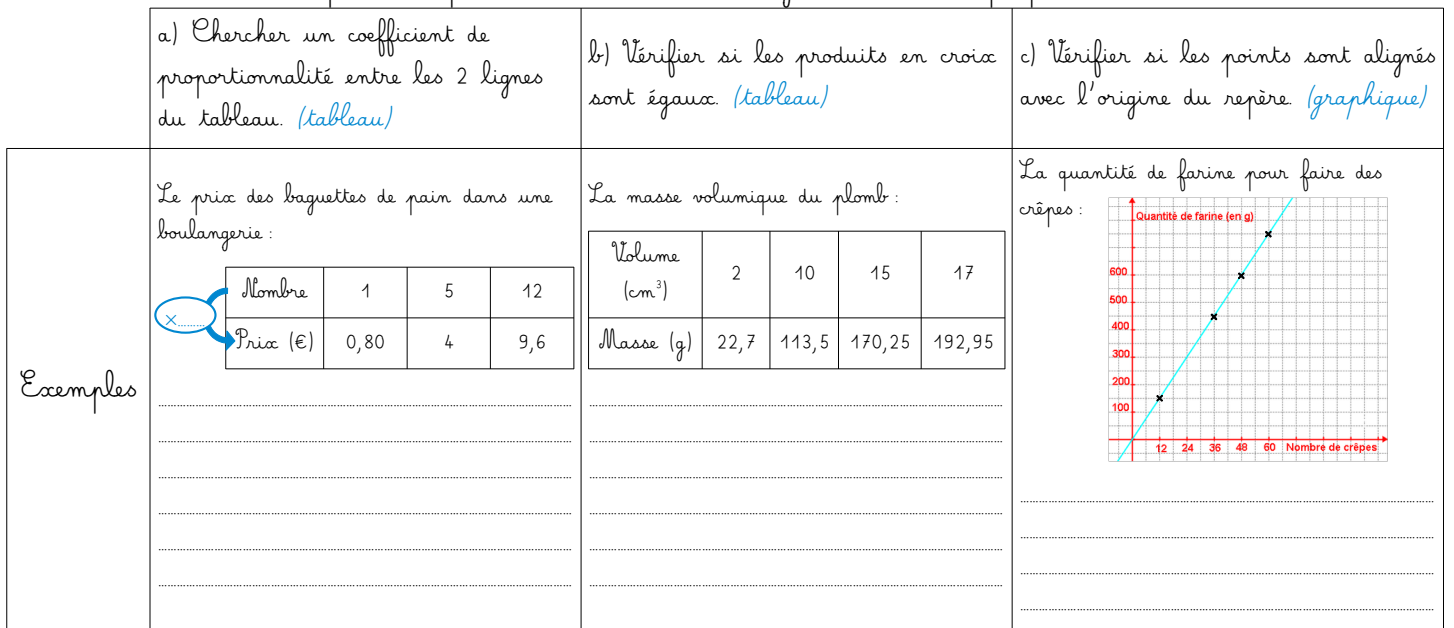 a) Chercher un coefficient de
proportionnalité entre les 2 lignes
du tableau. (tableau)
b) Vérifier si les produits en croix
sont égaux. (tableau)
c) Vérifier si les points sont alignés
avec l'origine du repère. (graphique)
Exemples
Le prix des baguettes de pain dans une
boulangerie :
Nombre 1 5 12
×.........
Prix (€) 0,80 4 9,6
La masse volumique du plomb :
Volume
(cm³) 2 10 15 17
Masse (g) 22,7 113,5 170,25 192,95
La quantité de farine pour faire des
crêpes :
Quantité de farine (en g)
600
500
400
300
200
100
12 24 36 48 60 Nombre de crêpes